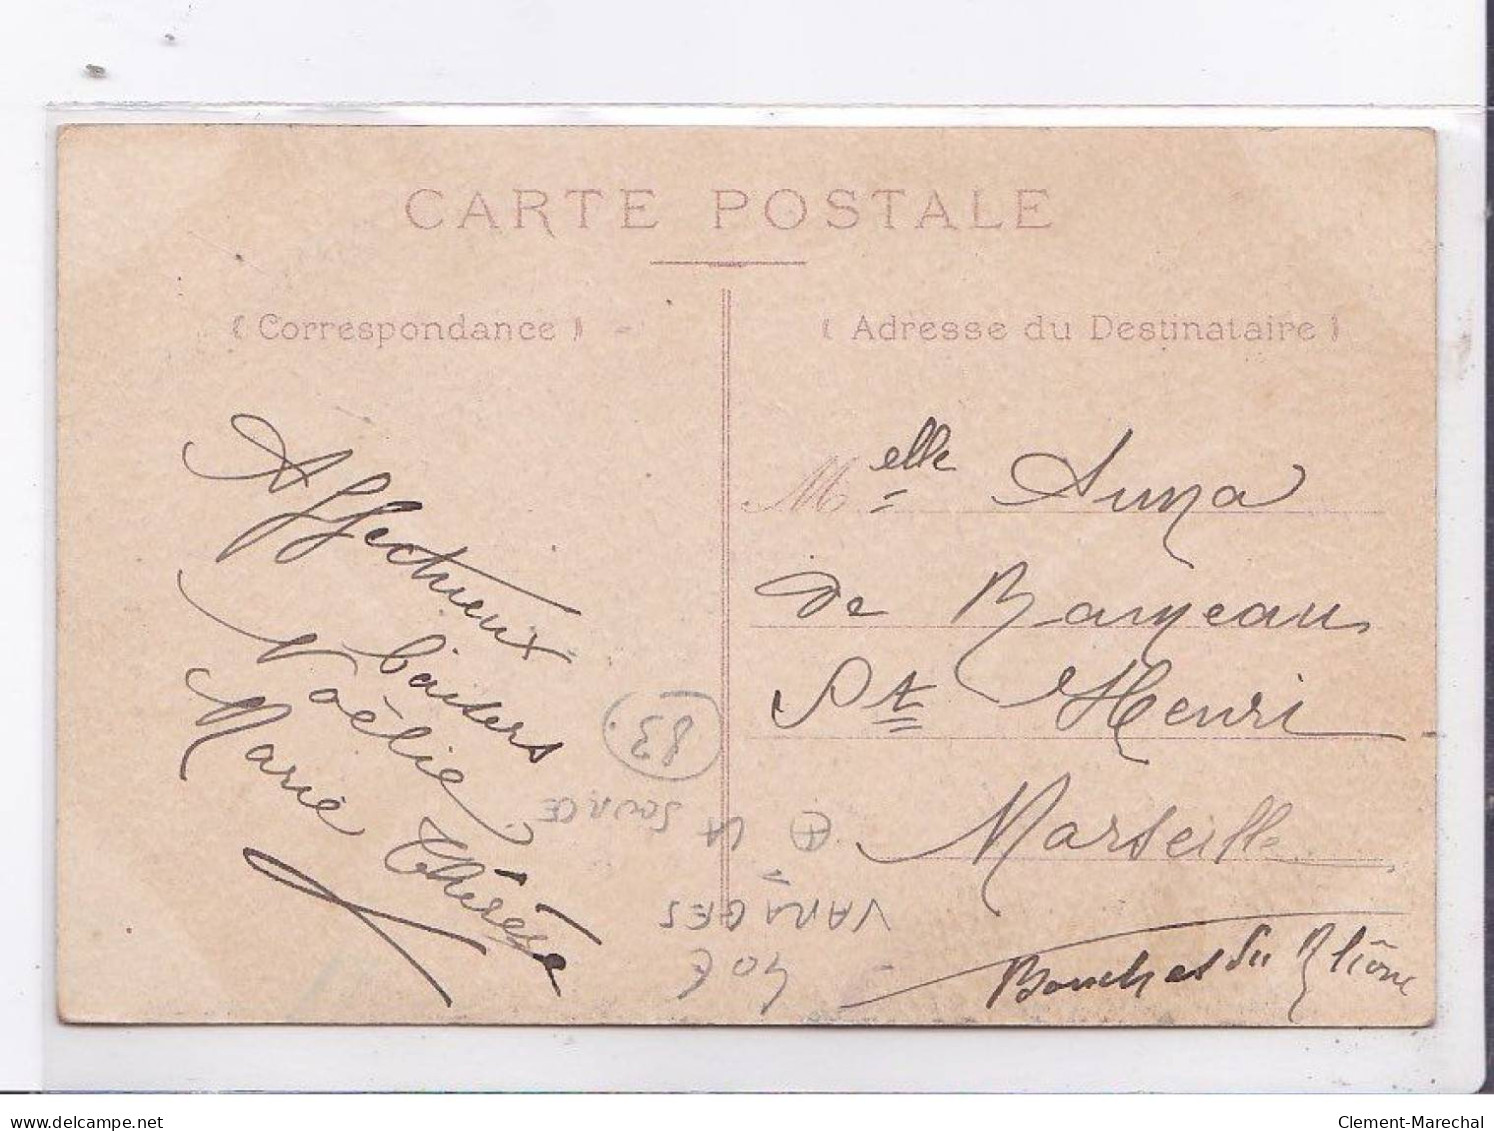 CARTE POSTALE
( Correspondance )
( Adresse du Destinataire )
Affectueux
baisers
Noëlie
Marie Thérèse
Melle Anna
de
St Henri
Marseille
Bouches du Rhône
83.
LA SOURCE
VARAGES
40€
delcampe.net
Clement-Marechal